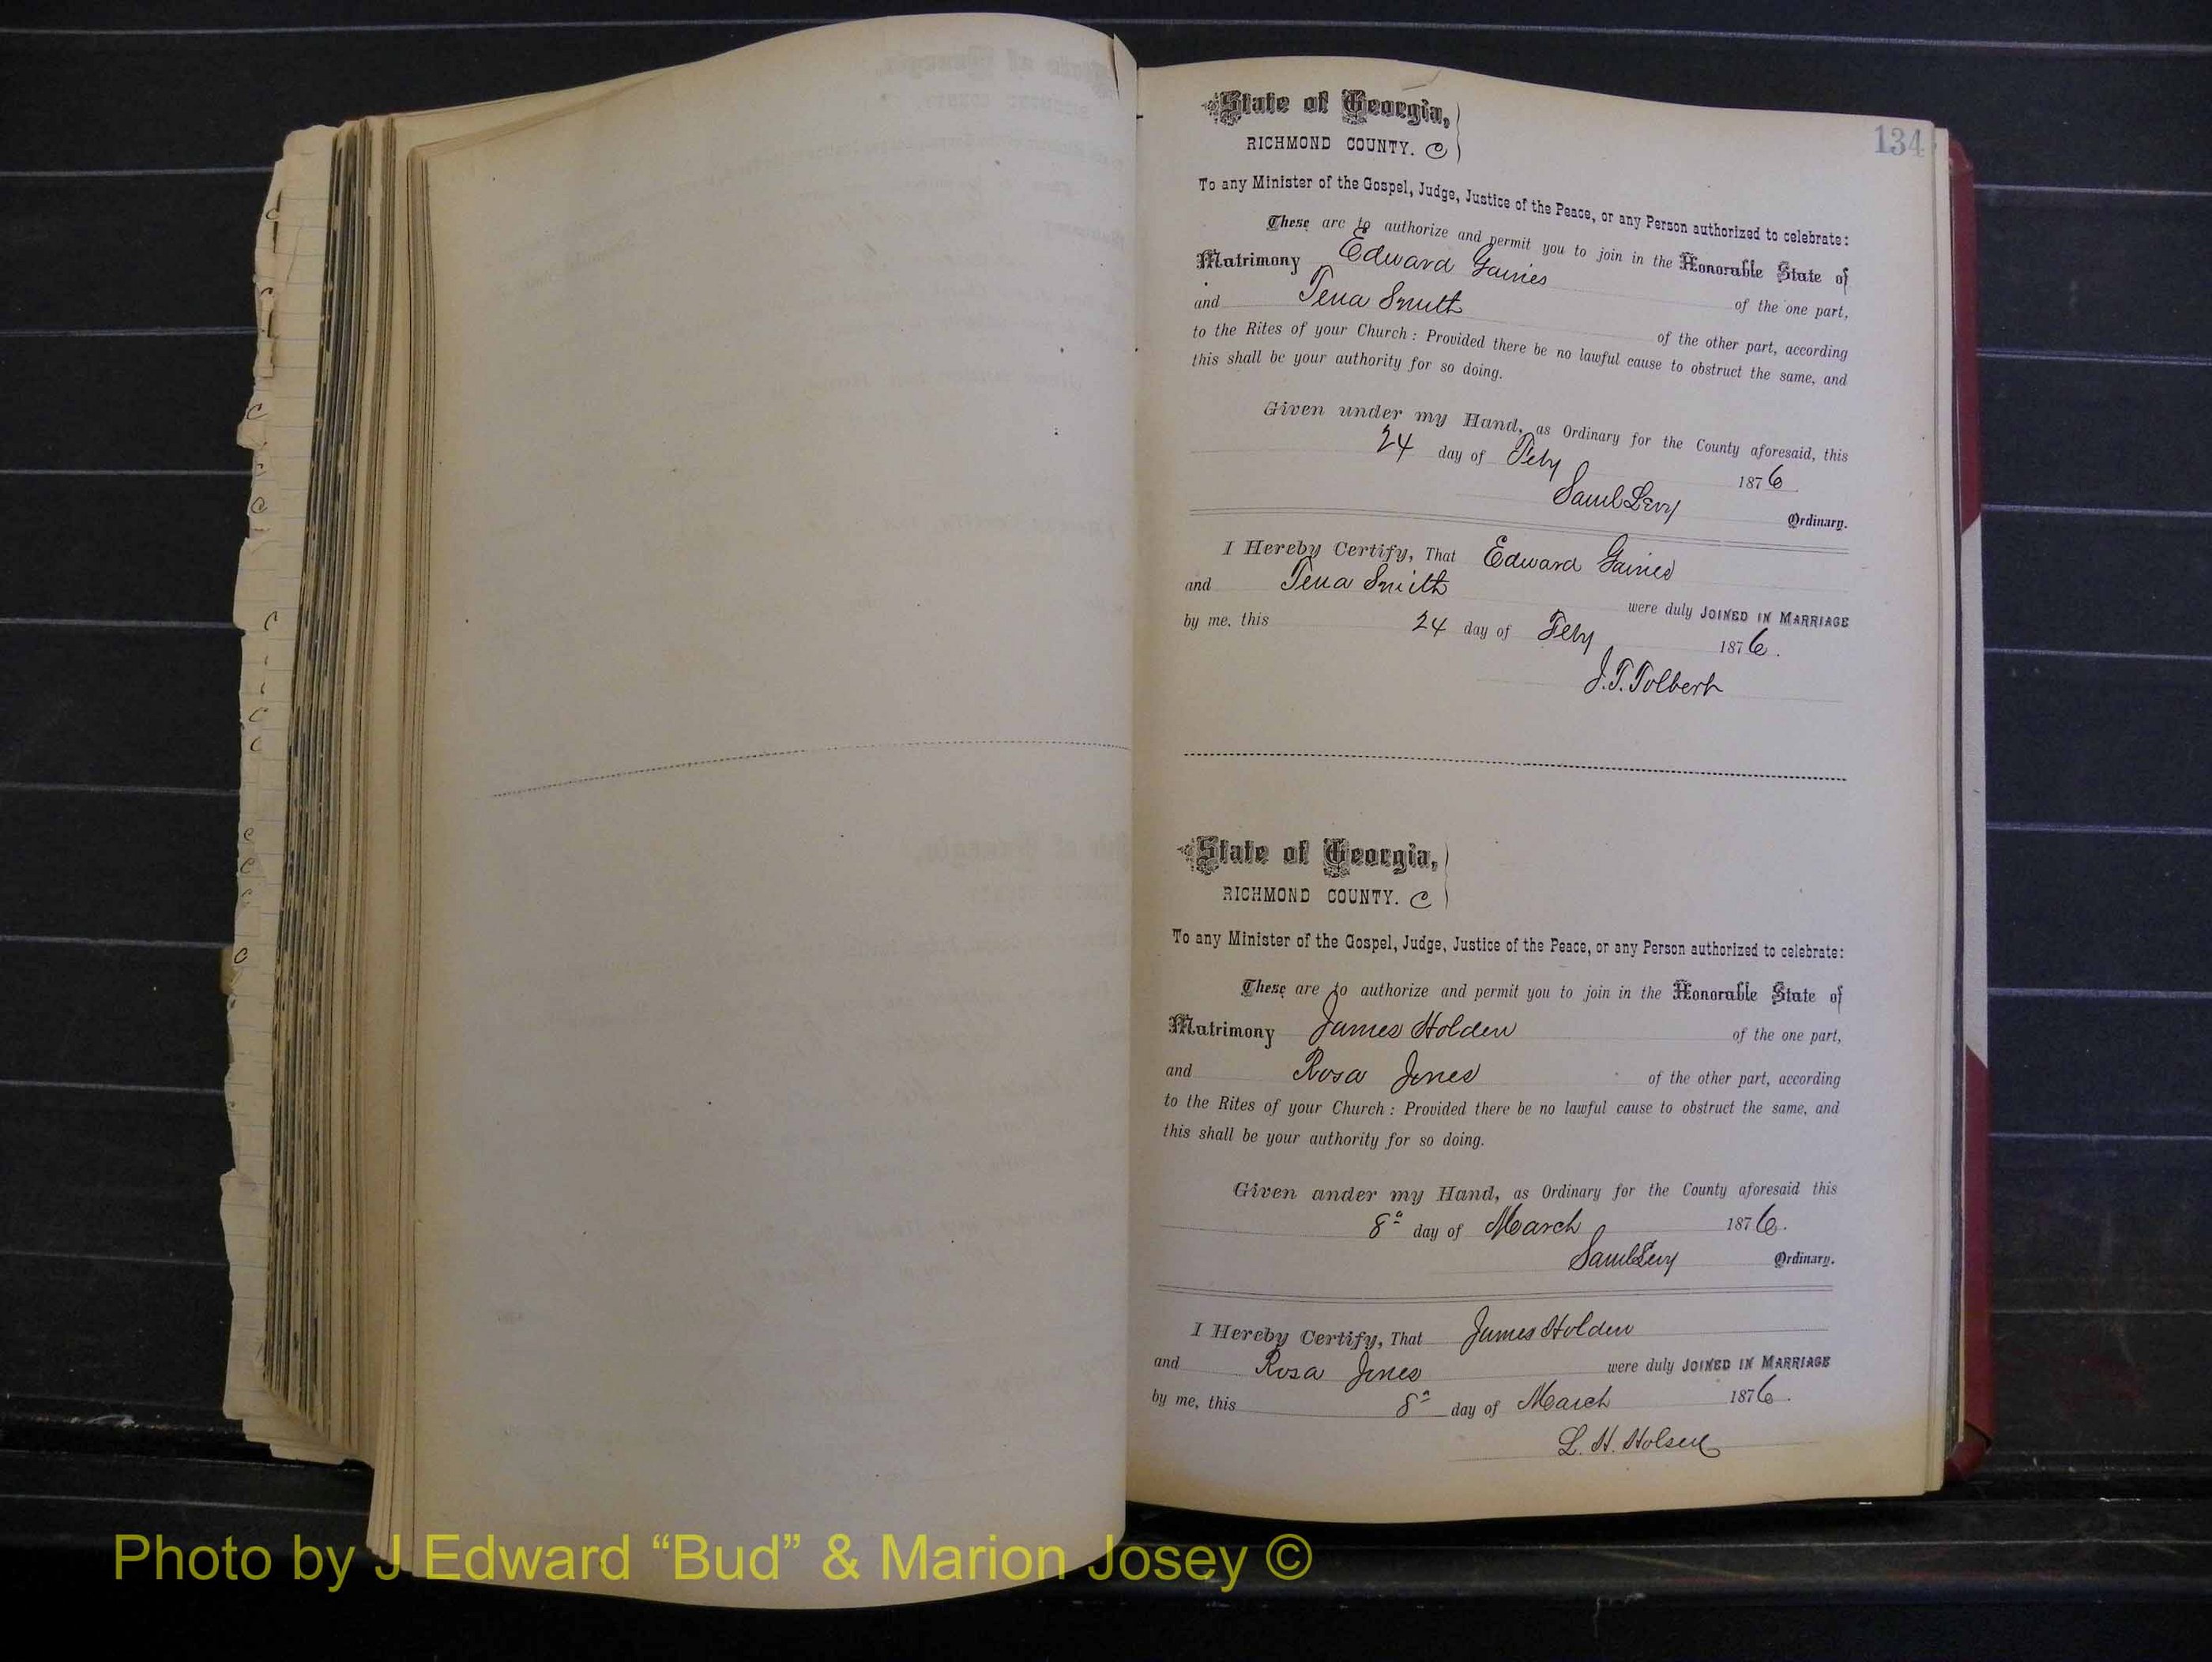 134
State of Georgia,
RICHMOND COUNTY. C
To any Minister of the Gospel, Judge, Justice of the Peace, or any Person authorized to celebrate:
These are to authorize and permit you to join in the Honorable State of
Matrimony Edward Gaines of the one part,
and Tena Smith of the other part, according
to the Rites of your Church: Provided there be no lawful cause to obstruct the same, and
this shall be your authority for so doing.
Given under my Hand, as Ordinary for the County aforesaid, this
24 day of Feby 1876
Saml Levy Ordinary.
I Hereby Certify, That Edward Gaines
and Tena Smith were duly JOINED IN MARRIAGE
by me, this 24 day of Feby 1876.
J. T. Tolbert
State of Georgia,
RICHMOND COUNTY. C
To any Minister of the Gospel, Judge, Justice of the Peace, or any Person authorized to celebrate:
These are to authorize and permit you to join in the Honorable State of
Matrimony James Holden of the one part,
and Rosa Jones of the other part, according
to the Rites of your Church: Provided there be no lawful cause to obstruct the same, and
this shall be your authority for so doing.
Given under my Hand, as Ordinary for the County aforesaid this
8" day of March 1876.
Saml Levy Ordinary.
I Hereby Certify, That James Holden
and Rosa Jones were duly JOINED IN MARRIAGE
by me, this 8" day of March 1876.
L. H. Holsey
Photo by J Edward “Bud” & Marion Josey ©